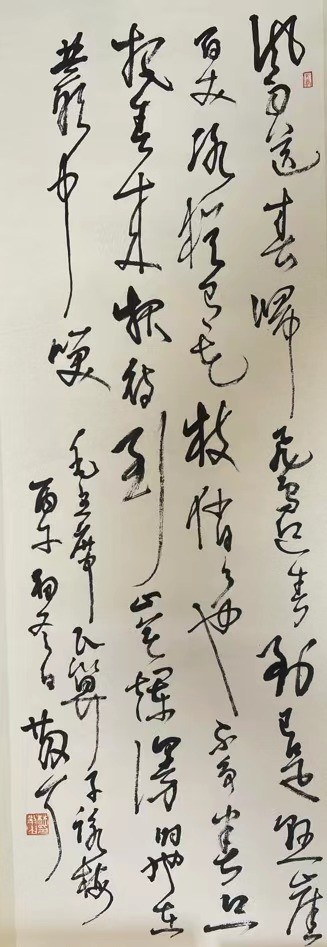 风雨送春归飞雪迎春到已是悬崖
百丈冰犹有花枝俏俏也不争春只
把春来报待到山花烂漫时她在
丛中笑
毛主席卜算子咏梅
丙午初冬日